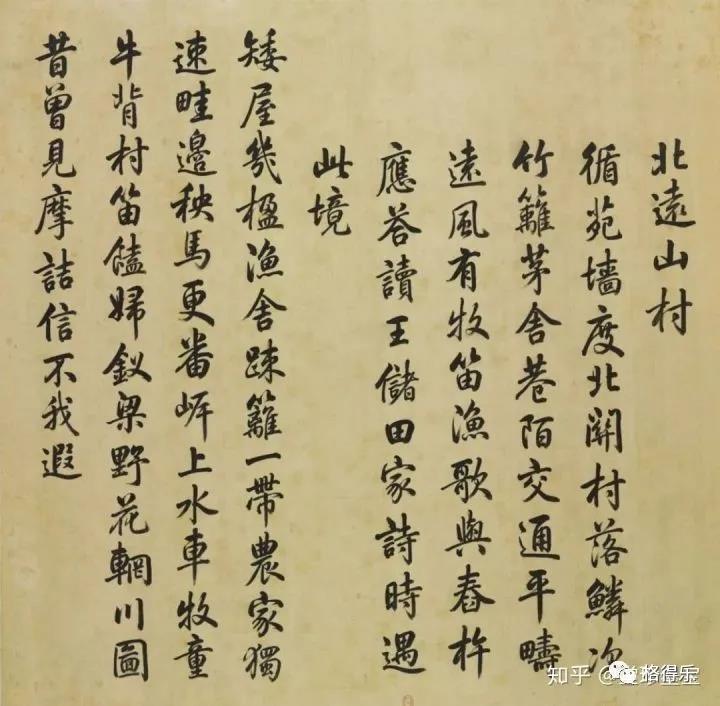 北遠山村
循苑墙度北關村落鱗次
竹籬茅舍巷陌交通平疇
遠風有牧笛漁歌與舂杵
應荅讀王儲田家詩時遇
此境
矮屋幾楹漁舍疎籬一帶農家獨
速畦邊秧馬更番岸上水車牧童
牛背村笛饁婦釵梁野花輞川圖
昔曾見摩詰信不我遐
知乎
格得乐